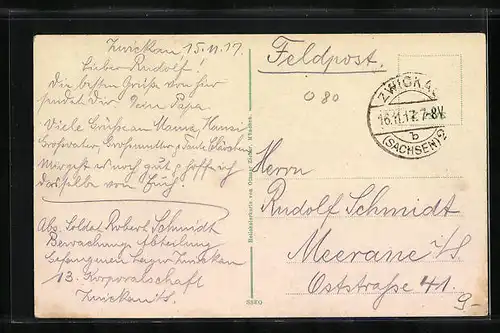 Zwickau 15.11.17.
Lieber Rudolf!
Die besten Grüße von hier
sendet Dir Dein Papa.
Viele Grüße an Mama, Hansi
Großvater, Großmutter, Tante
Mir geht es noch gut, hoffe ich
dasselbe von Euch!
Abs. Soldat Robert Schmidt
Bewachungs Abteilung
Gefangnen Lager Zwickau
13. Korporalschaft
Zwickau i/S.
Feldpost.
080
ZWICKAU
16.11.17. 7-8V.
b
(SACHSEN) 2
Herrn
Rudolf Schmidt
Meerane i/S.
Oststraße 41.
9-